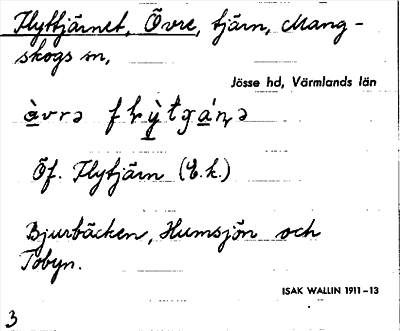 Flyttjärnet, Övre, tjärn, Mang-
skogs sn,
Jösse hd, Värmlands län
Öf. Flytjärn (E.k.)
Bjurbäcken, Humsjön och
Tobyn.
ISAK WALLIN 1911-13
3